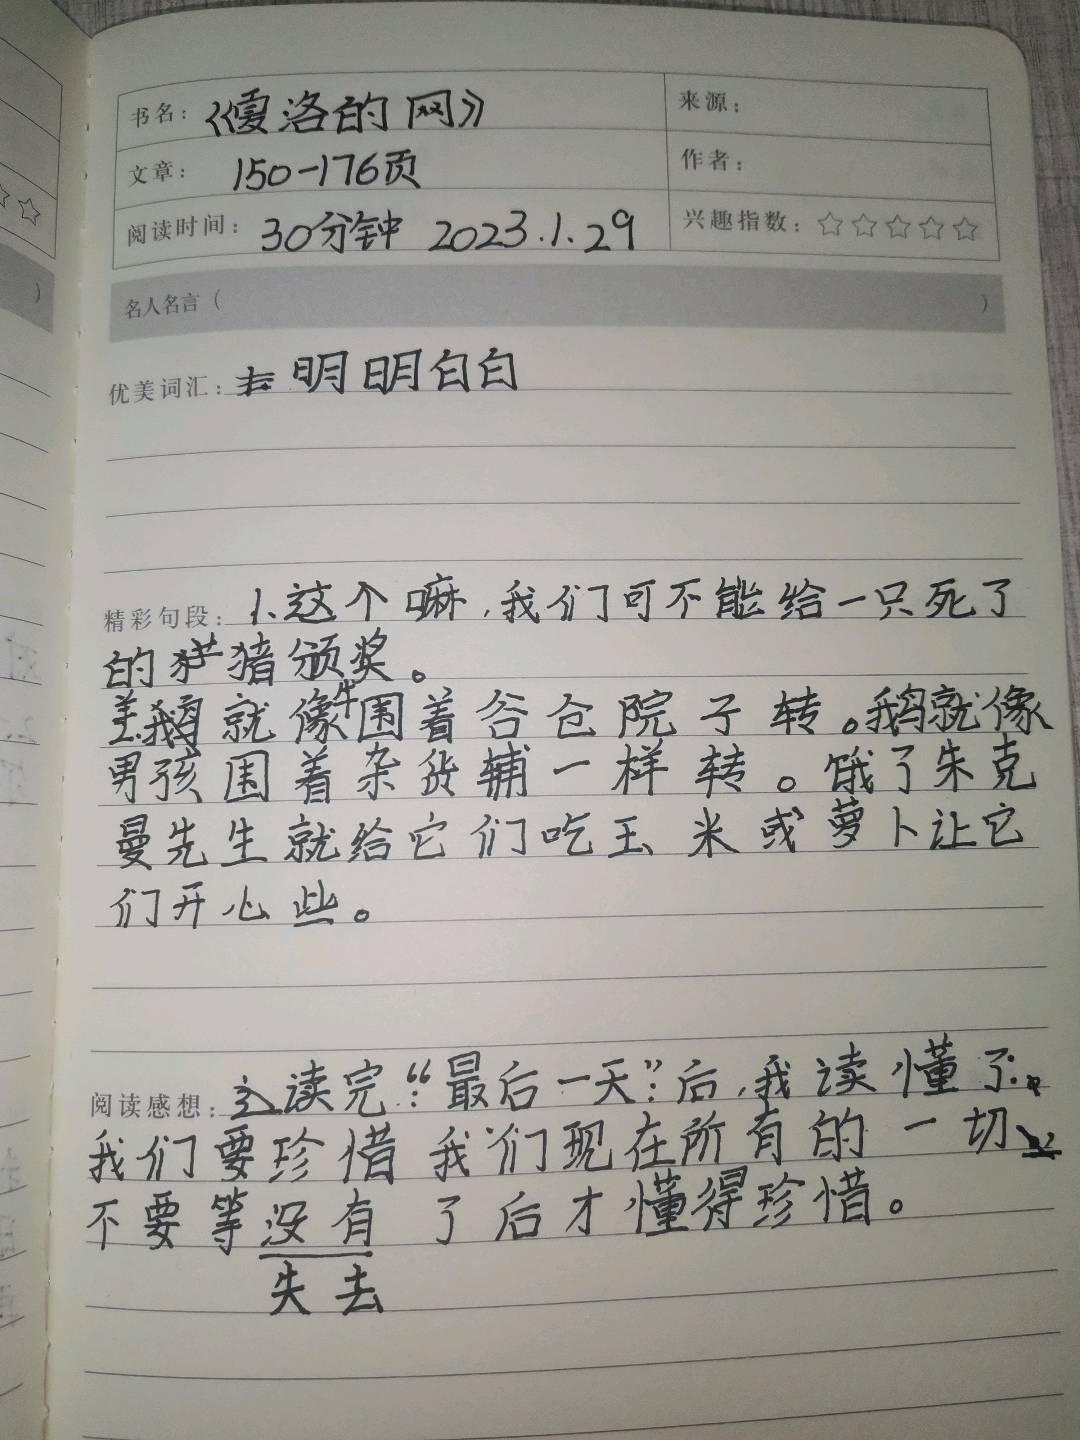 书名：《夏洛的网》 来源：
文章： 150-176页 作者：
阅读时间： 30分钟 2023.1.29 兴趣指数：☆☆☆☆☆
名人名言（ ）
优美词汇： 明明白白
精彩句段： 1.这个嘛，我们可不能给一只死了
的猪颁奖。
鹅就像牛围着谷仓院子转。鹅就像
男孩围着杂货辅一样转。饿了朱克
曼先生就给它们吃玉米或萝卜让它
们开心些。
阅读感想： 读完“最后一天”后，我读懂了
我们要珍惜我们现在所有的一切
不要等没有了后才懂得珍惜。
失去